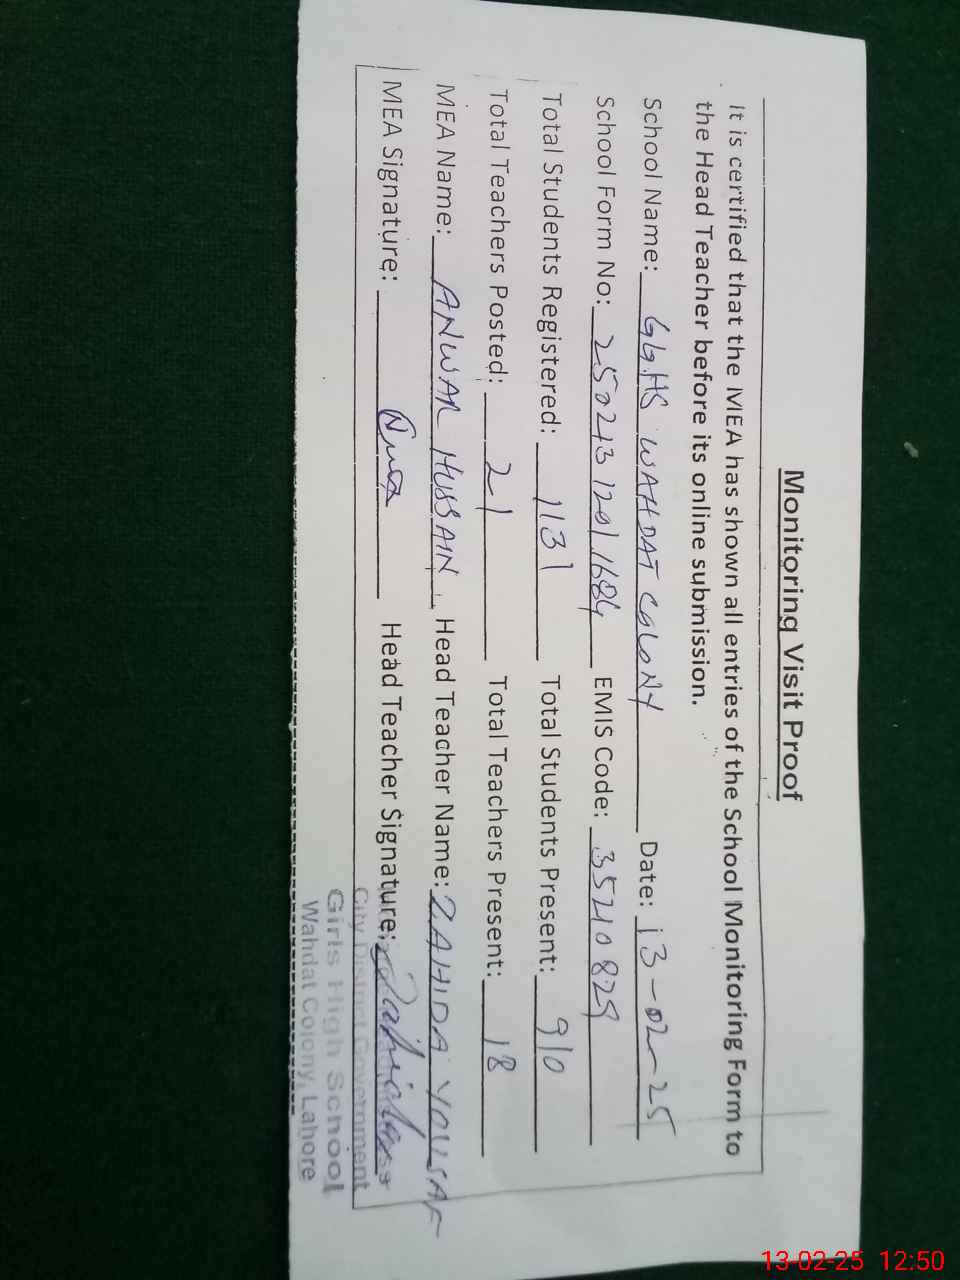 Monitoring Visit Proof
It is certified that the MEA has shown all entries of the School Monitoring Form to
the Head Teacher before its online submission.
School Name: GGHS WAHDAT COLONY Date: 13-02-25
School Form No: 250213 1201 1684 EMIS Code: 35210829
Total Students Registered: 1131 Total Students Present: 910
Total Teachers Posted: 21 Total Teachers Present: 18
MEA Name: ANWAR HUSSAIN Head Teacher Name: ZAHIDA YOUSAF
MEA Signature: Head Teacher Signature:
City District Government
Girls High School
Wahdat Colony, Lahore
13-02-25 12:50